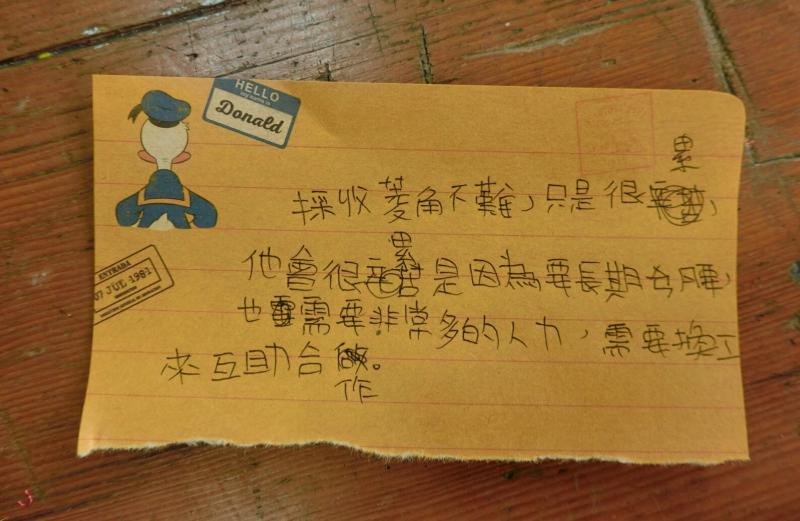 HELLO
my name is
Donald
採收菱角不難，只是很累，
他會很累是因為要長期腰，
ENTRADA
07 JUL 1981
也需要非常多的人力，需要換工
來互助合作。